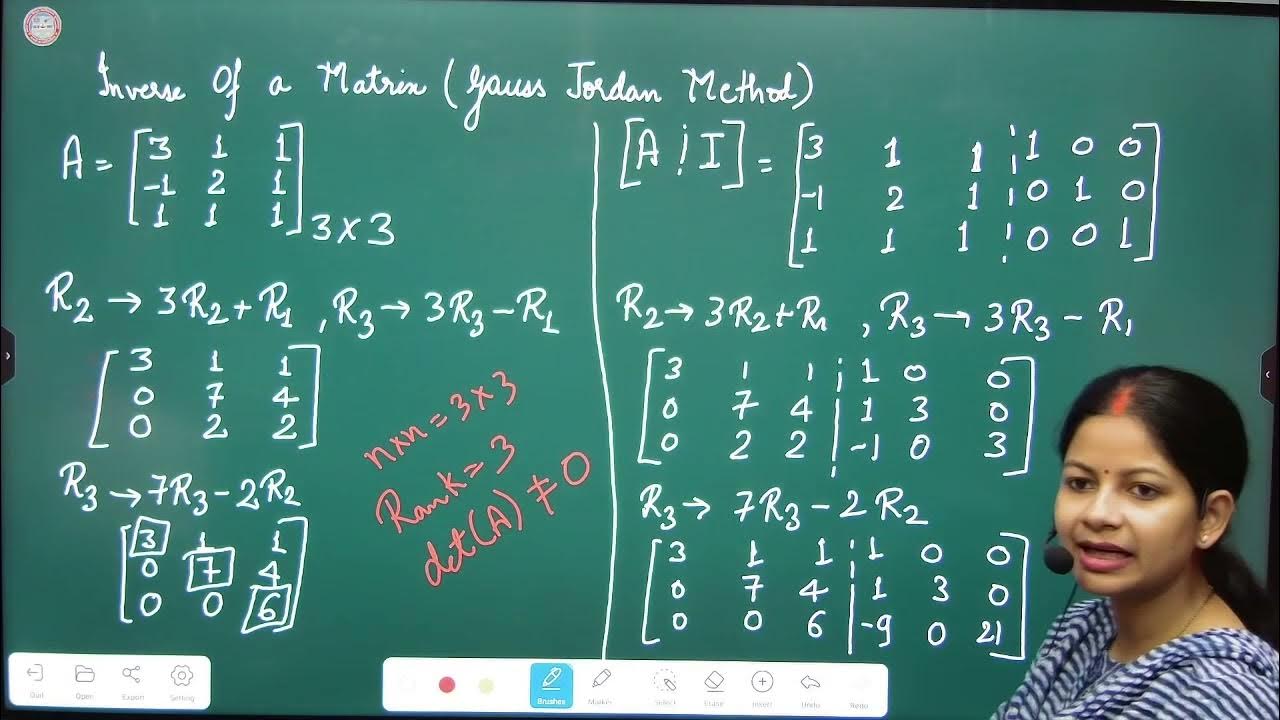 Inverse Of a Matrix (Gauss Jordan Method)
A = [3 1 1
-1 2 1
1 1 1] 3×3
R2 → 3R2 + R1 , R3 → 3R3 – R1
[3 1 1
0 7 4
0 2 2]
R3 → 7R3 – 2R2
[3 1 1
0 7 4
0 0 6]
n×n = 3×3
Rank = 3
det(A) ≠ 0
[A ¦ I] = [3 1 1 ¦ 1 0 0
-1 2 1 ¦ 0 1 0
1 1 1 ¦ 0 0 1]
R2 → 3R2 + R1 , R3 → 3R3 – R1
[3 1 1 ¦ 1 0 0
0 7 4 ¦ 1 3 0
0 2 2 ¦ -1 0 3]
R3 → 7R3 – 2R2
[3 1 1 ¦ 1 0 0
0 7 4 ¦ 1 3 0
0 0 6 ¦ -9 0 21]
Quit Open Export Setting
Brushes Marker Select Erase Insert Undo Redo